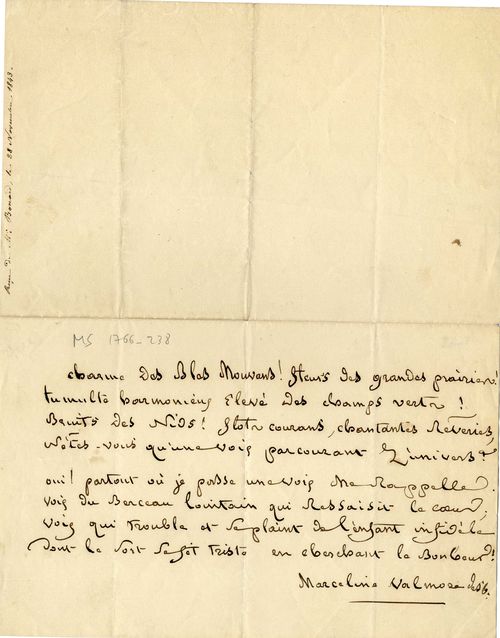 Reçu de Mr Bonard, le 28 Novembre 1843.
MS 1766-238
charme des Blés Mouvans! fleurs des grandes prairies!
tumulte harmonieux Élevé des champs verts!
Bruits des Nids! flots courans, chantantes Rêveries
N'êtes-vous qu'une voix parcourant L'univers?
oui! partout où je passe une voix Me Rappelle.
voix du Berceau lointain qui Ressaisit le cœur,
voix qui trouble et se plaint de l'enfant infidèle
dont le sort se fit triste en cherchant le Bonheur!
Marceline Valmore